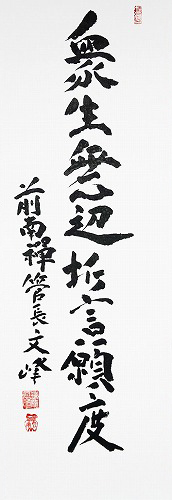 衆生無辺誓願度
前南禅管長文峰